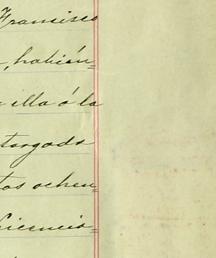 Francisco
, habién=
illa ó la
torgada
tos ochen
licencia